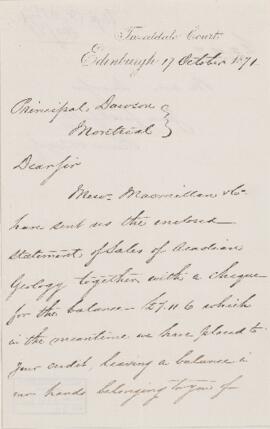 Tweeddale Court
Edinburgh 17 October 1871.
Principal Dawson
Montreal
Dear Sir
Messrs Macmillan & Co
have sent us the enclosed
statement of Sales of Acadian
Geology together with a cheque
for the balance £7.11.6 which
in the meantime we have placed to
your credit, leaving a balance in
our hands belonging to you of